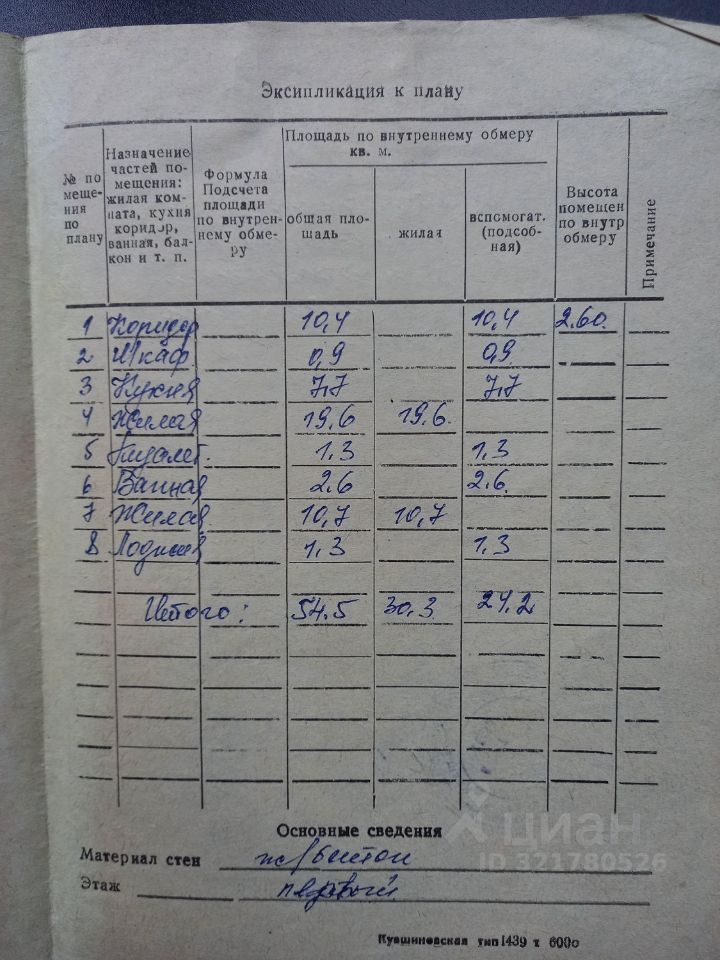 Экспликация к плану
№ по мещения по плану
Назначение частей помещения: жилая комната, кухня коридор, ванная, балкон и т. п.
Формула Подсчета площади по внутреннему обмеру
Площадь по внутреннему обмеру кв. м.
общая площадь
жилая
вспомогат. (подсобная)
Высота помещен по внутр обмеру
Примечание
1 Коридор 10,4 10,4 2.60.
2 Шкаф 0,9 0,9
3 Кухня 7,7 7,7
4 Жилая 19,6 19,6.
5 Туалет. 1,3 1,3
6 Ванная 2.6 2.6.
7 Жилая 10,7 10,7
8 Лоджия 1,3 1,3
Итого: 54.5 30,3 24,2
Основные сведения
Материал стен ж/бетон
Этаж первый
Кувшиновская тип 1439 т 6000
циан
ID 321780526